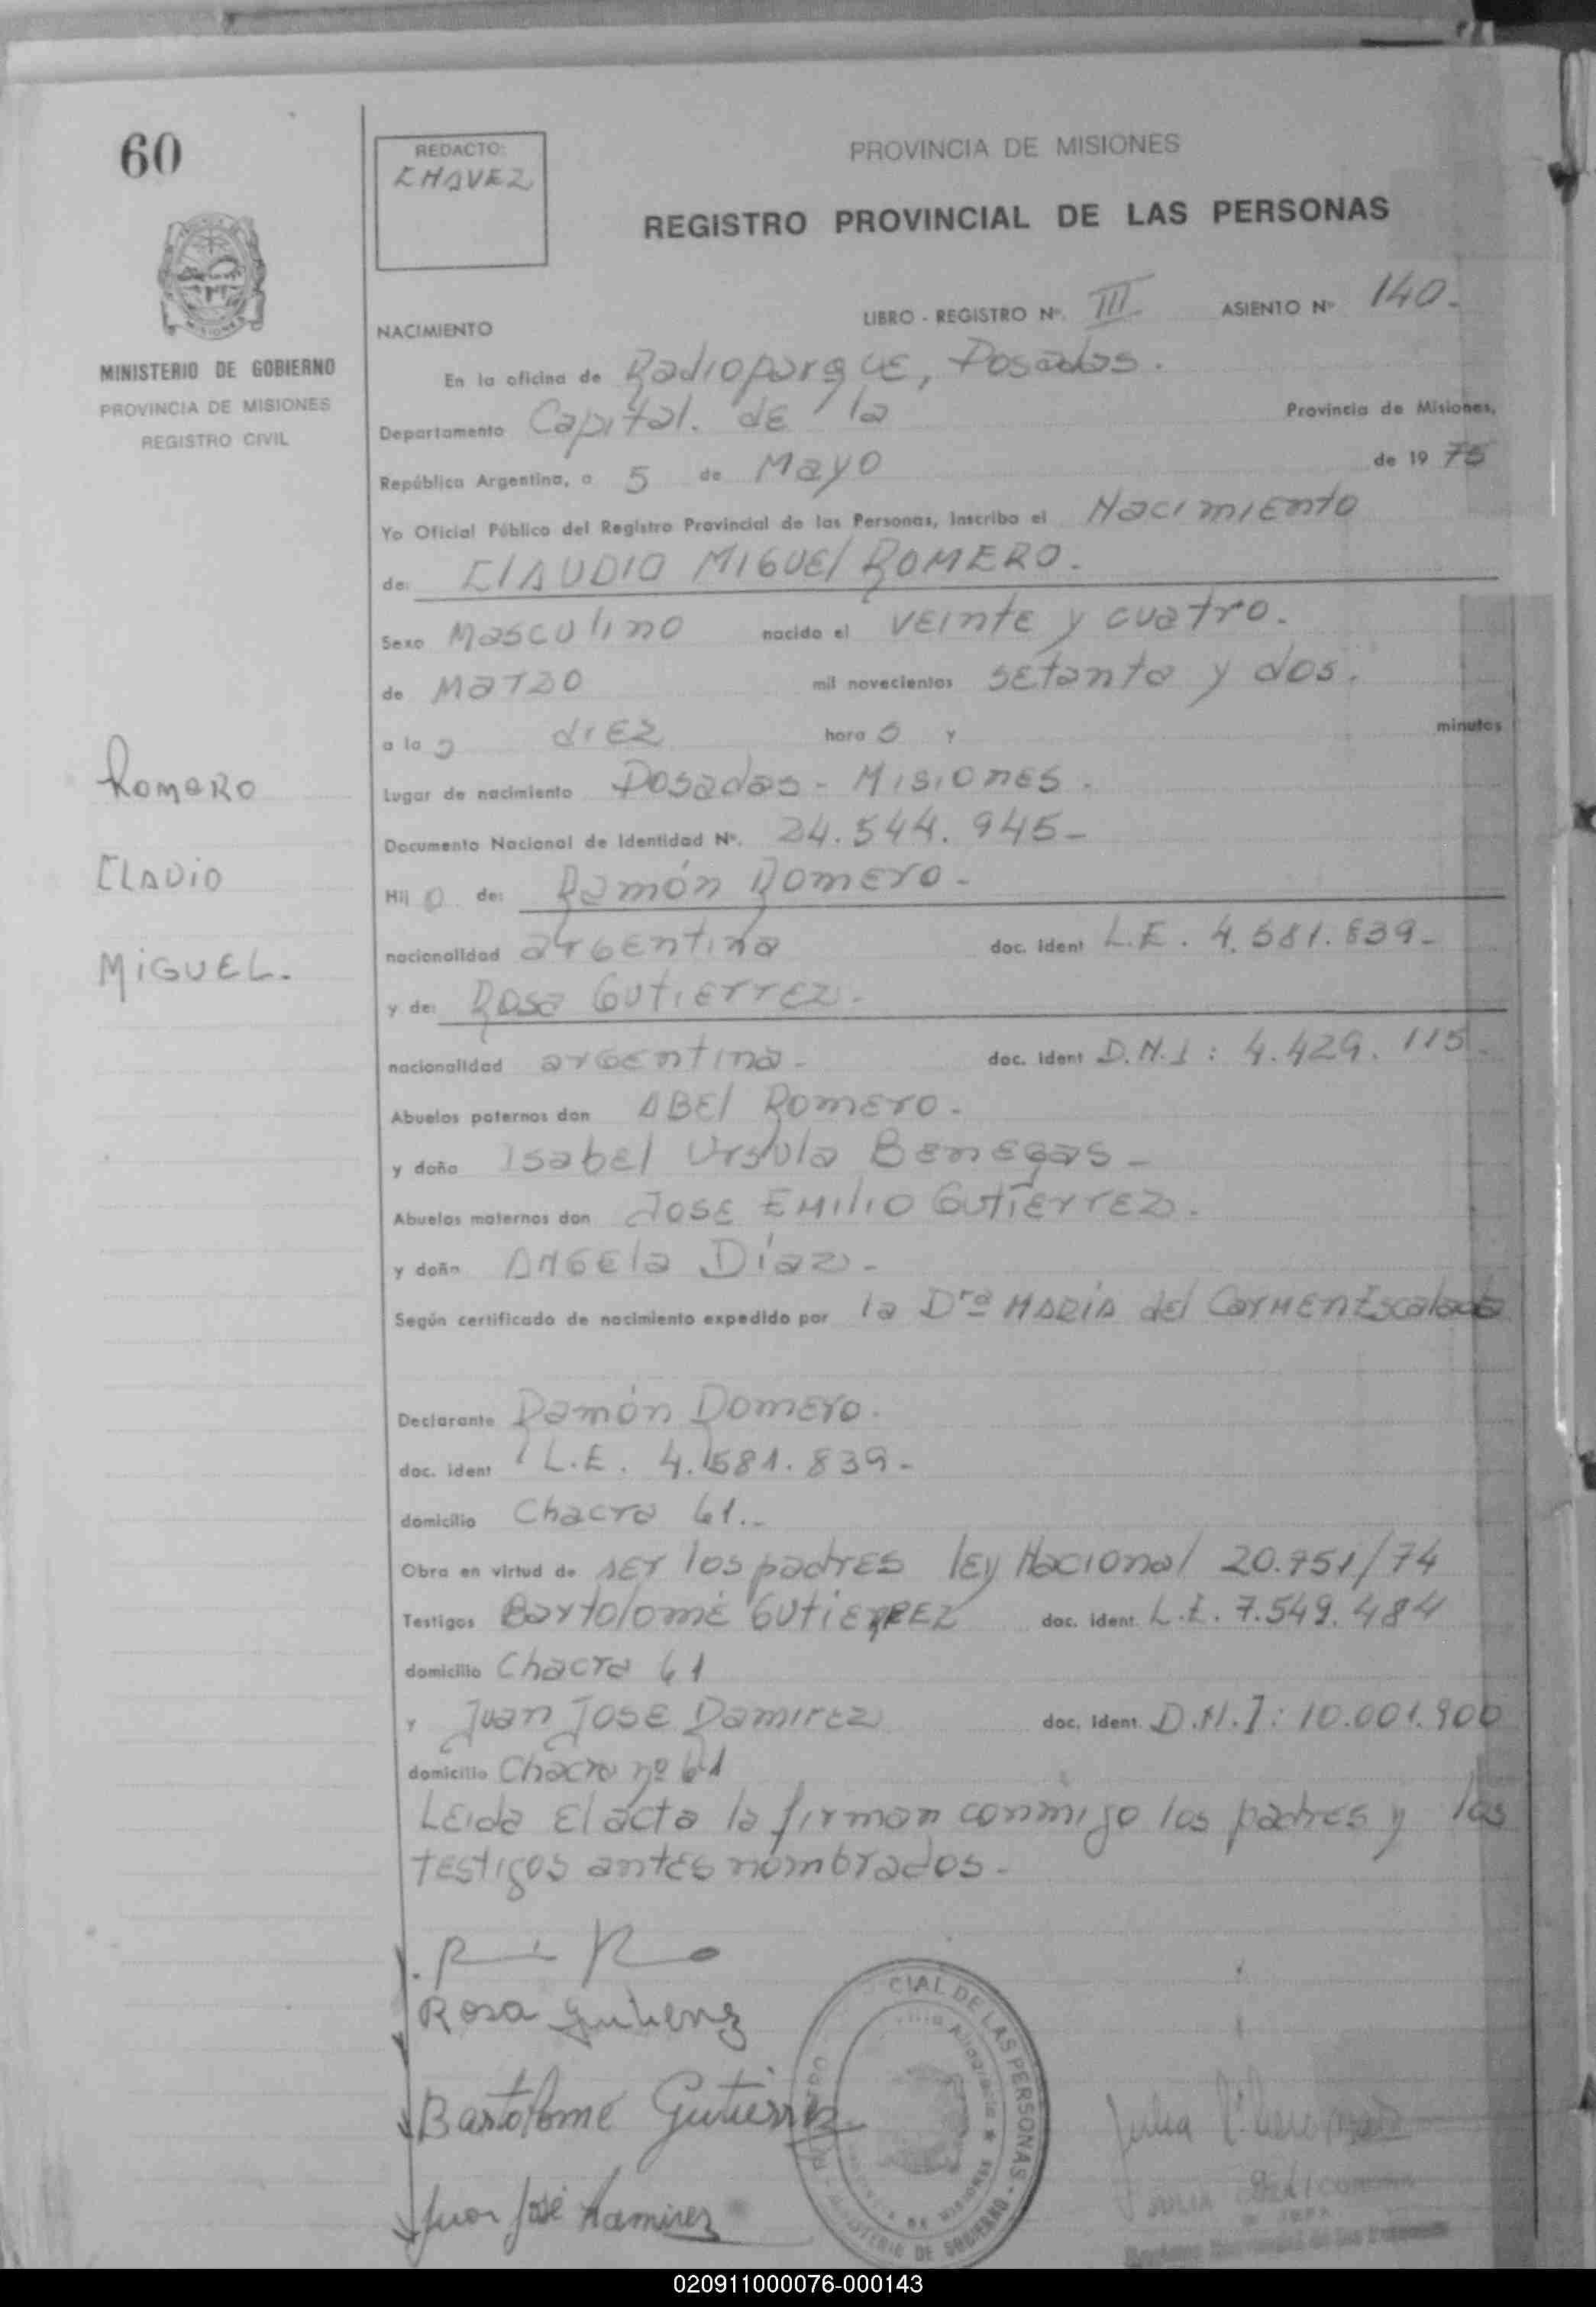 60
REDACTO:
CHAVEZ
PROVINCIA DE MISIONES
REGISTRO PROVINCIAL DE LAS PERSONAS
MISIONES
MINISTERIO DE GOBIERNO
PROVINCIA DE MISIONES
REGISTRO CIVIL
LIBRO - REGISTRO Nº. III ASIENTO Nº 140.-
NACIMIENTO
En la oficina de Radioparque, Posadas.
Departamento Capital. de la Provincia de Misiones,
República Argentina, a 5 de Mayo de 1975
Yo Oficial Público del Registro Provincial de las Personas, Inscribo el Nacimiento
de: CLAUDIO MIGUEL ROMERO.
Sexo Masculino nacido el veinte y cuatro.
de Marzo mil novecientos setenta y dos.
a las diez horas y minutos
Lugar de nacimiento Posadas - Misiones.
Documento Nacional de Identidad Nº. 24.544.945-
Hijo de: Ramón Romero -
nacionalidad argentina doc. ident L.E. 4.581.839-
y de: Rosa Gutierrez.
nacionalidad argentina- doc. ident D.N.I: 4.429.115-
Abuelos paternos don ABEl Romero.
y doña Isabel Ursula Benegas-
Abuelos maternos don Jose Emilio Gutierrez.
y doña Angela Díaz-
Según certificado de nacimiento expedido por la Drª MARÍA del Carmen Escalada
Romero
CLADIO
MIGUEL.
Declarante Ramón Romero.
doc. ident L.E. 4.581.839-
domicilio Chacra 61.-
Obra en virtud de ser los padres ley Nacional 20.751/74
Testigos Bartolomé Gutierrez doc. ident. L.E. 7.549.484
domicilio Chacra 61
y Juan Jose Ramirez doc. ident. D.N.I: 10.001.900
domicilio Chacra nº 61
Leida el acta la firman conmigo los padres y los
testigos antes nombrados-
Rosa Gutierrez
Bartolome Gutierrez
Juan José Ramirez
CIAL DE LAS PERSONAS - MINISTERIO DE GOBIERNO
DE MISIONES
Julia
JULIA
020911000076-000143